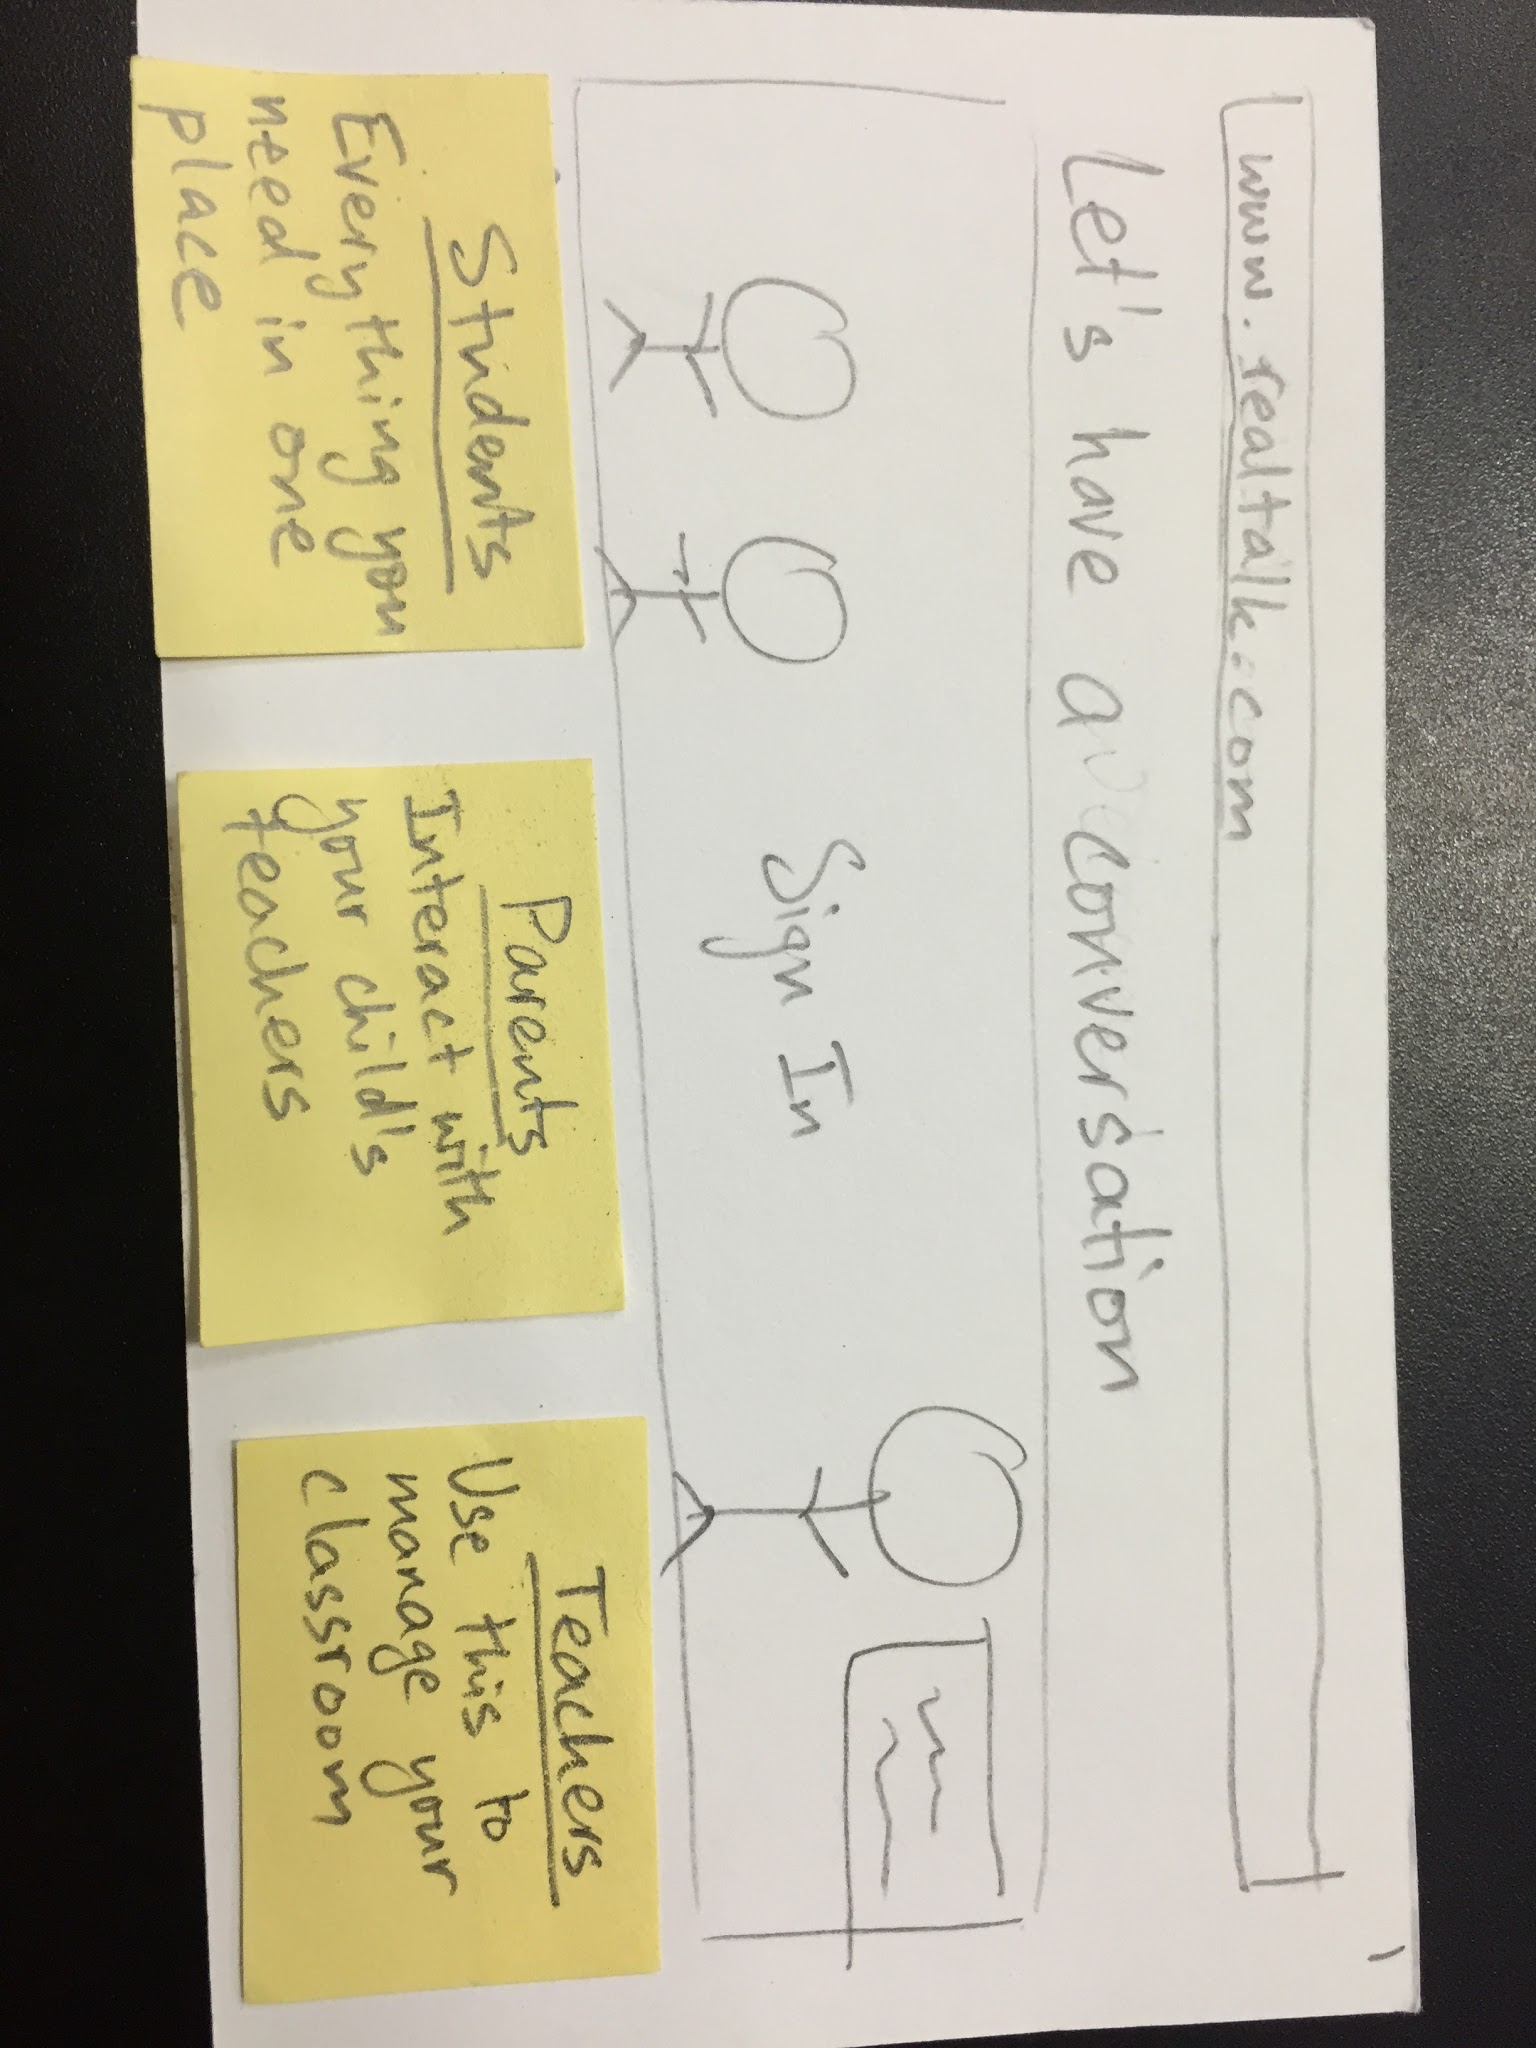 www.realtalk.com
Let's have a conversation
Sign In
Students
Everything you
need in one
place
Parents
Interact with
your child's
teachers
Teachers
Use this to
manage your
classroom